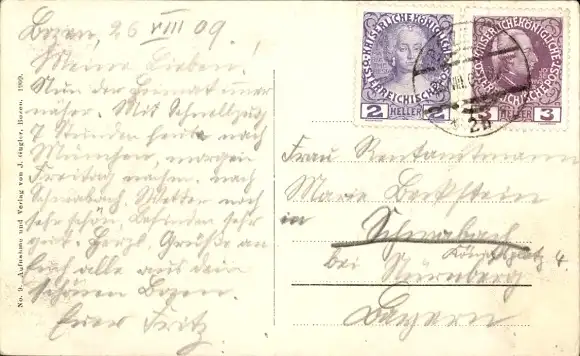 Bozen, 26 VIII 09.
Meine Lieben!
Nun der Heimat immer
näher. Mit Schnellzug
7 Stunden heute nach
München, morgen
Freitag nachm. nach
Schwabach. Wetter noch
sehr schön, Befinden sehr
gut. Herzl. Grüße an
Euch alle aus dem
schönen Bozen.
Euer Fritz
No. 9. Aufnahme und Verlag von J. Gugler, Bozen. 1909.
KAISERLICHE KÖNIGLICHE
ÖSTERREICHISCHE POST
2 HELLER 2
KAISERLICHE KÖNIGLICHE
ÖSTERREICHISCHE POST
3 HELLER 3
2b
Frau Rentamtmann
Marie Beckstein
in Schwabach
Königsplatz 4.
bei Nürnberg
Bayern